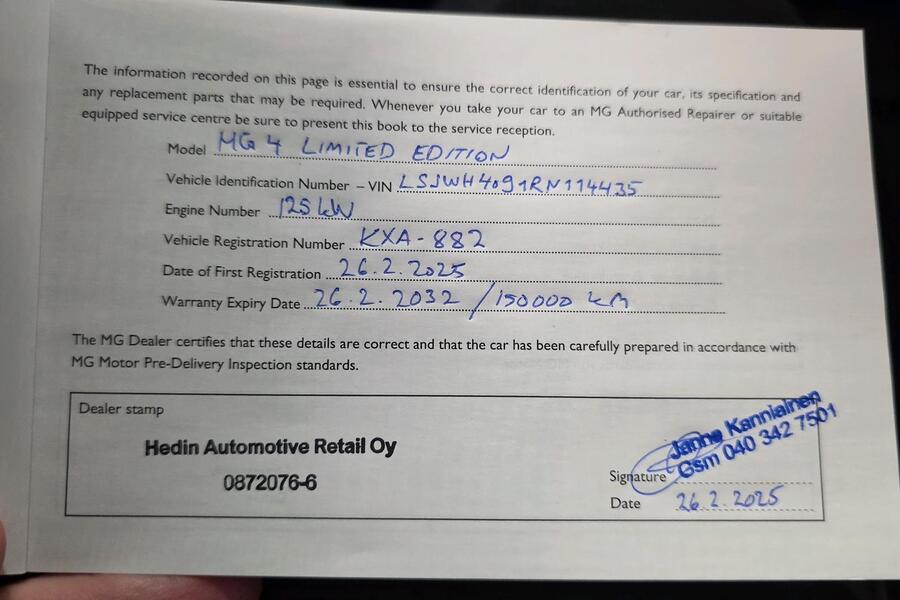 The information recorded on this page is essential to ensure the correct identification of your car, its specification and
any replacement parts that may be required. Whenever you take your car to an MG Authorised Repairer or suitable
equipped service centre be sure to present this book to the service reception.
Model MG 4 LIMITED EDITION
Vehicle Identification Number – VIN LSJWH4091RN114435
Engine Number 125 kW
Vehicle Registration Number KXA-882
Date of First Registration 26.2.2025
Warranty Expiry Date 26.2.2032 / 150000 km
The MG Dealer certifies that these details are correct and that the car has been carefully prepared in accordance with
MG Motor Pre-Delivery Inspection standards.
Dealer stamp
Hedin Automotive Retail Oy
0872076-6
Janne Kanniainen
Gsm 040 342 7501
Signature
Date 26.2.2025